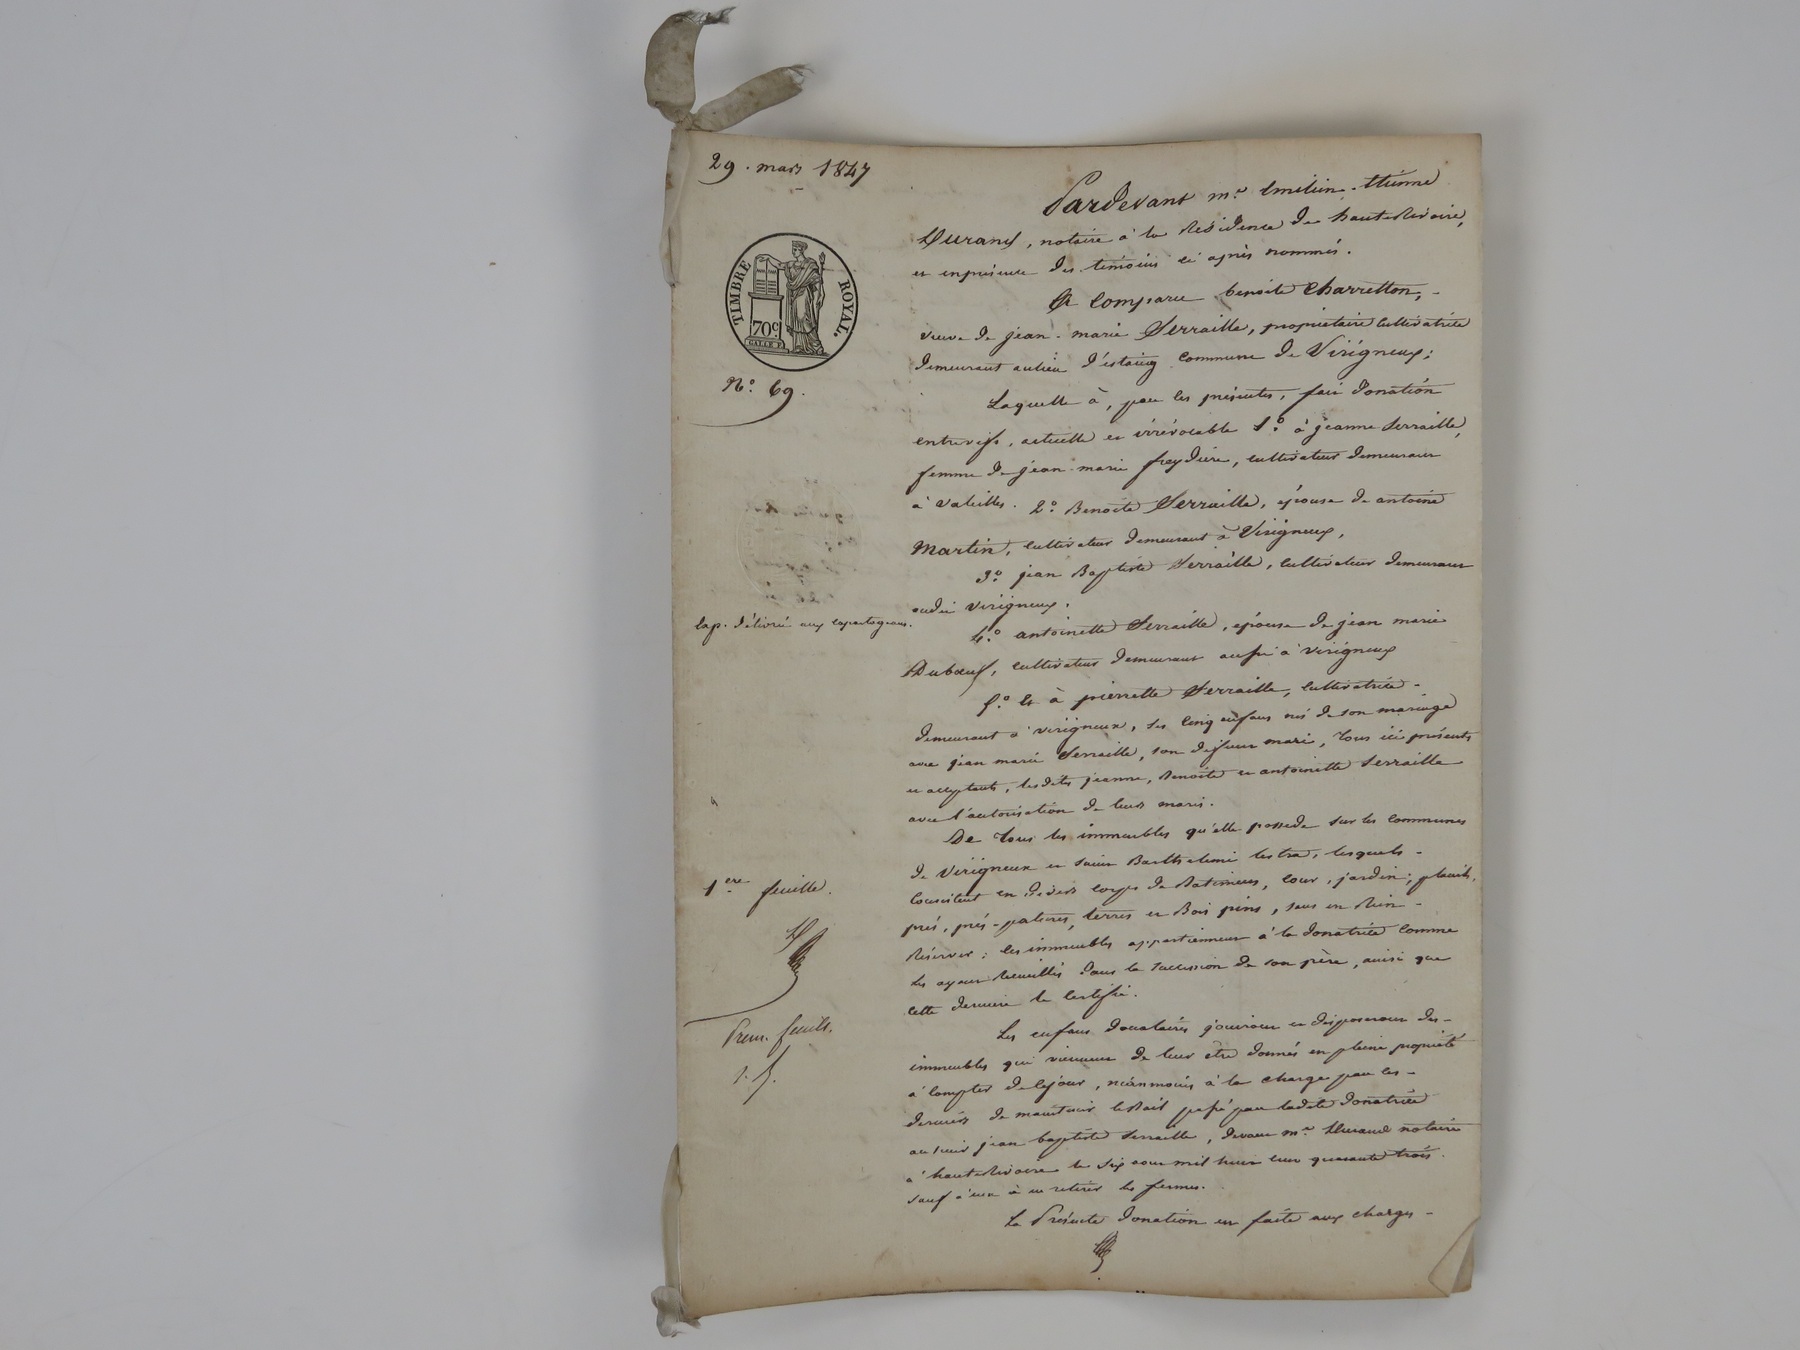 29. mars 1847
TIMBRE ROYAL.
70c.
GALLE F.
N.° 69.
exp. délivrée aux copartageans.
1ere feuille.
Prem. feuill.
Pardevant me. Emilien-Etienne
Durand, notaire à la Résidence de hauterivoire,
et en présence des témoins ci après nommés.
A Comparu benoite Charretton,
veuve de jean-marie Serraille, propriétaire cultivatrice
demeurant au lieu d'éstaing commune de Virigneux;
Laquelle à, par les présentes, fait donation
entrevifs, actuelle et irrévocable 1.° à jeanne Serraille,
femme de jean-marie freydière, cultivateur demeurant
à valeilles. 2.° Benoite Serraille, épouse de antoine
Martin, cultivateur demeurant à Virigneux,
3.° jean Baptiste Serraille, cultivateur demeurant
audit virigneux.
4.° antoinette Serraille, épouse de jean marie
Duboeuf, cultivateur demeurant aussi à virigneux
5.° Et à pierrette Serraille, cultivatrice
demeurant à virigneux, ses cinq enfans nés de son mariage
avec jean marie Serraille, son défunt mari, tous ici présents
et acceptants, lesdites jeanne, Benoite et antoinette Serraille
avec l'autorisation de leurs maris.
De tous les immeubles qu'elle possede sur les communes
de Virigneux et saint Barthelemi lestra, lesquels
consistent en divers corps de Batimens, cour, jardin,
prés, prés-patures, terres et Bois pins, sans en Rien
Réserver; les immeubles appartiennent à la donatrice comme
les ayant Recueillis dans la succession de son père, ainsi que
cette derniere le certifie.
Les enfans donataires jouiront et disposeront des
immeubles qui viennent de leur être donnés en pleine propriété
à compter de ce jour, néanmoins à la charge par ces
derniers de maintenir le Bail passé par ladite donatrice
audit jean baptiste Serraille, devant me. Durand notaire
à hauterivoire le six aout mil huit cent quarante trois.
sauf à eux à en retirer les fermes.
La Présente donation est faite aux charges